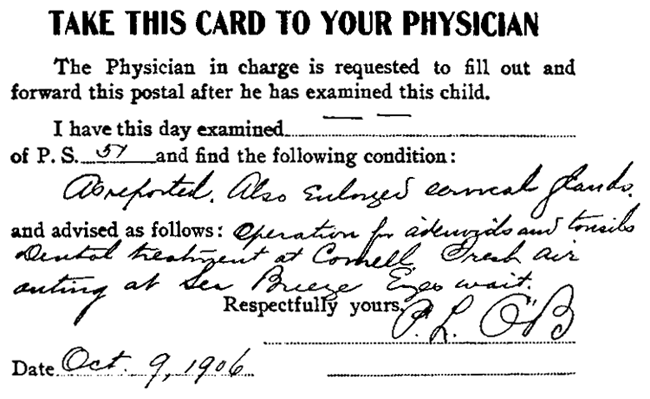 TAKE THIS CARD TO YOUR PHYSICIAN
The Physician in charge is requested to fill out and
forward this postal after he has examined this child.
I have this day examined
of P. S. 51 and find the following condition:
As reported. Also enlarged cervical glands.
and advised as follows: Operation for adenoids and tonsils
Dental treatment at Cornell Fresh air
outing at Sea Breeze Eyes wait.
Respectfully yours,
P. L. O'B
Date Oct. 9, 1906